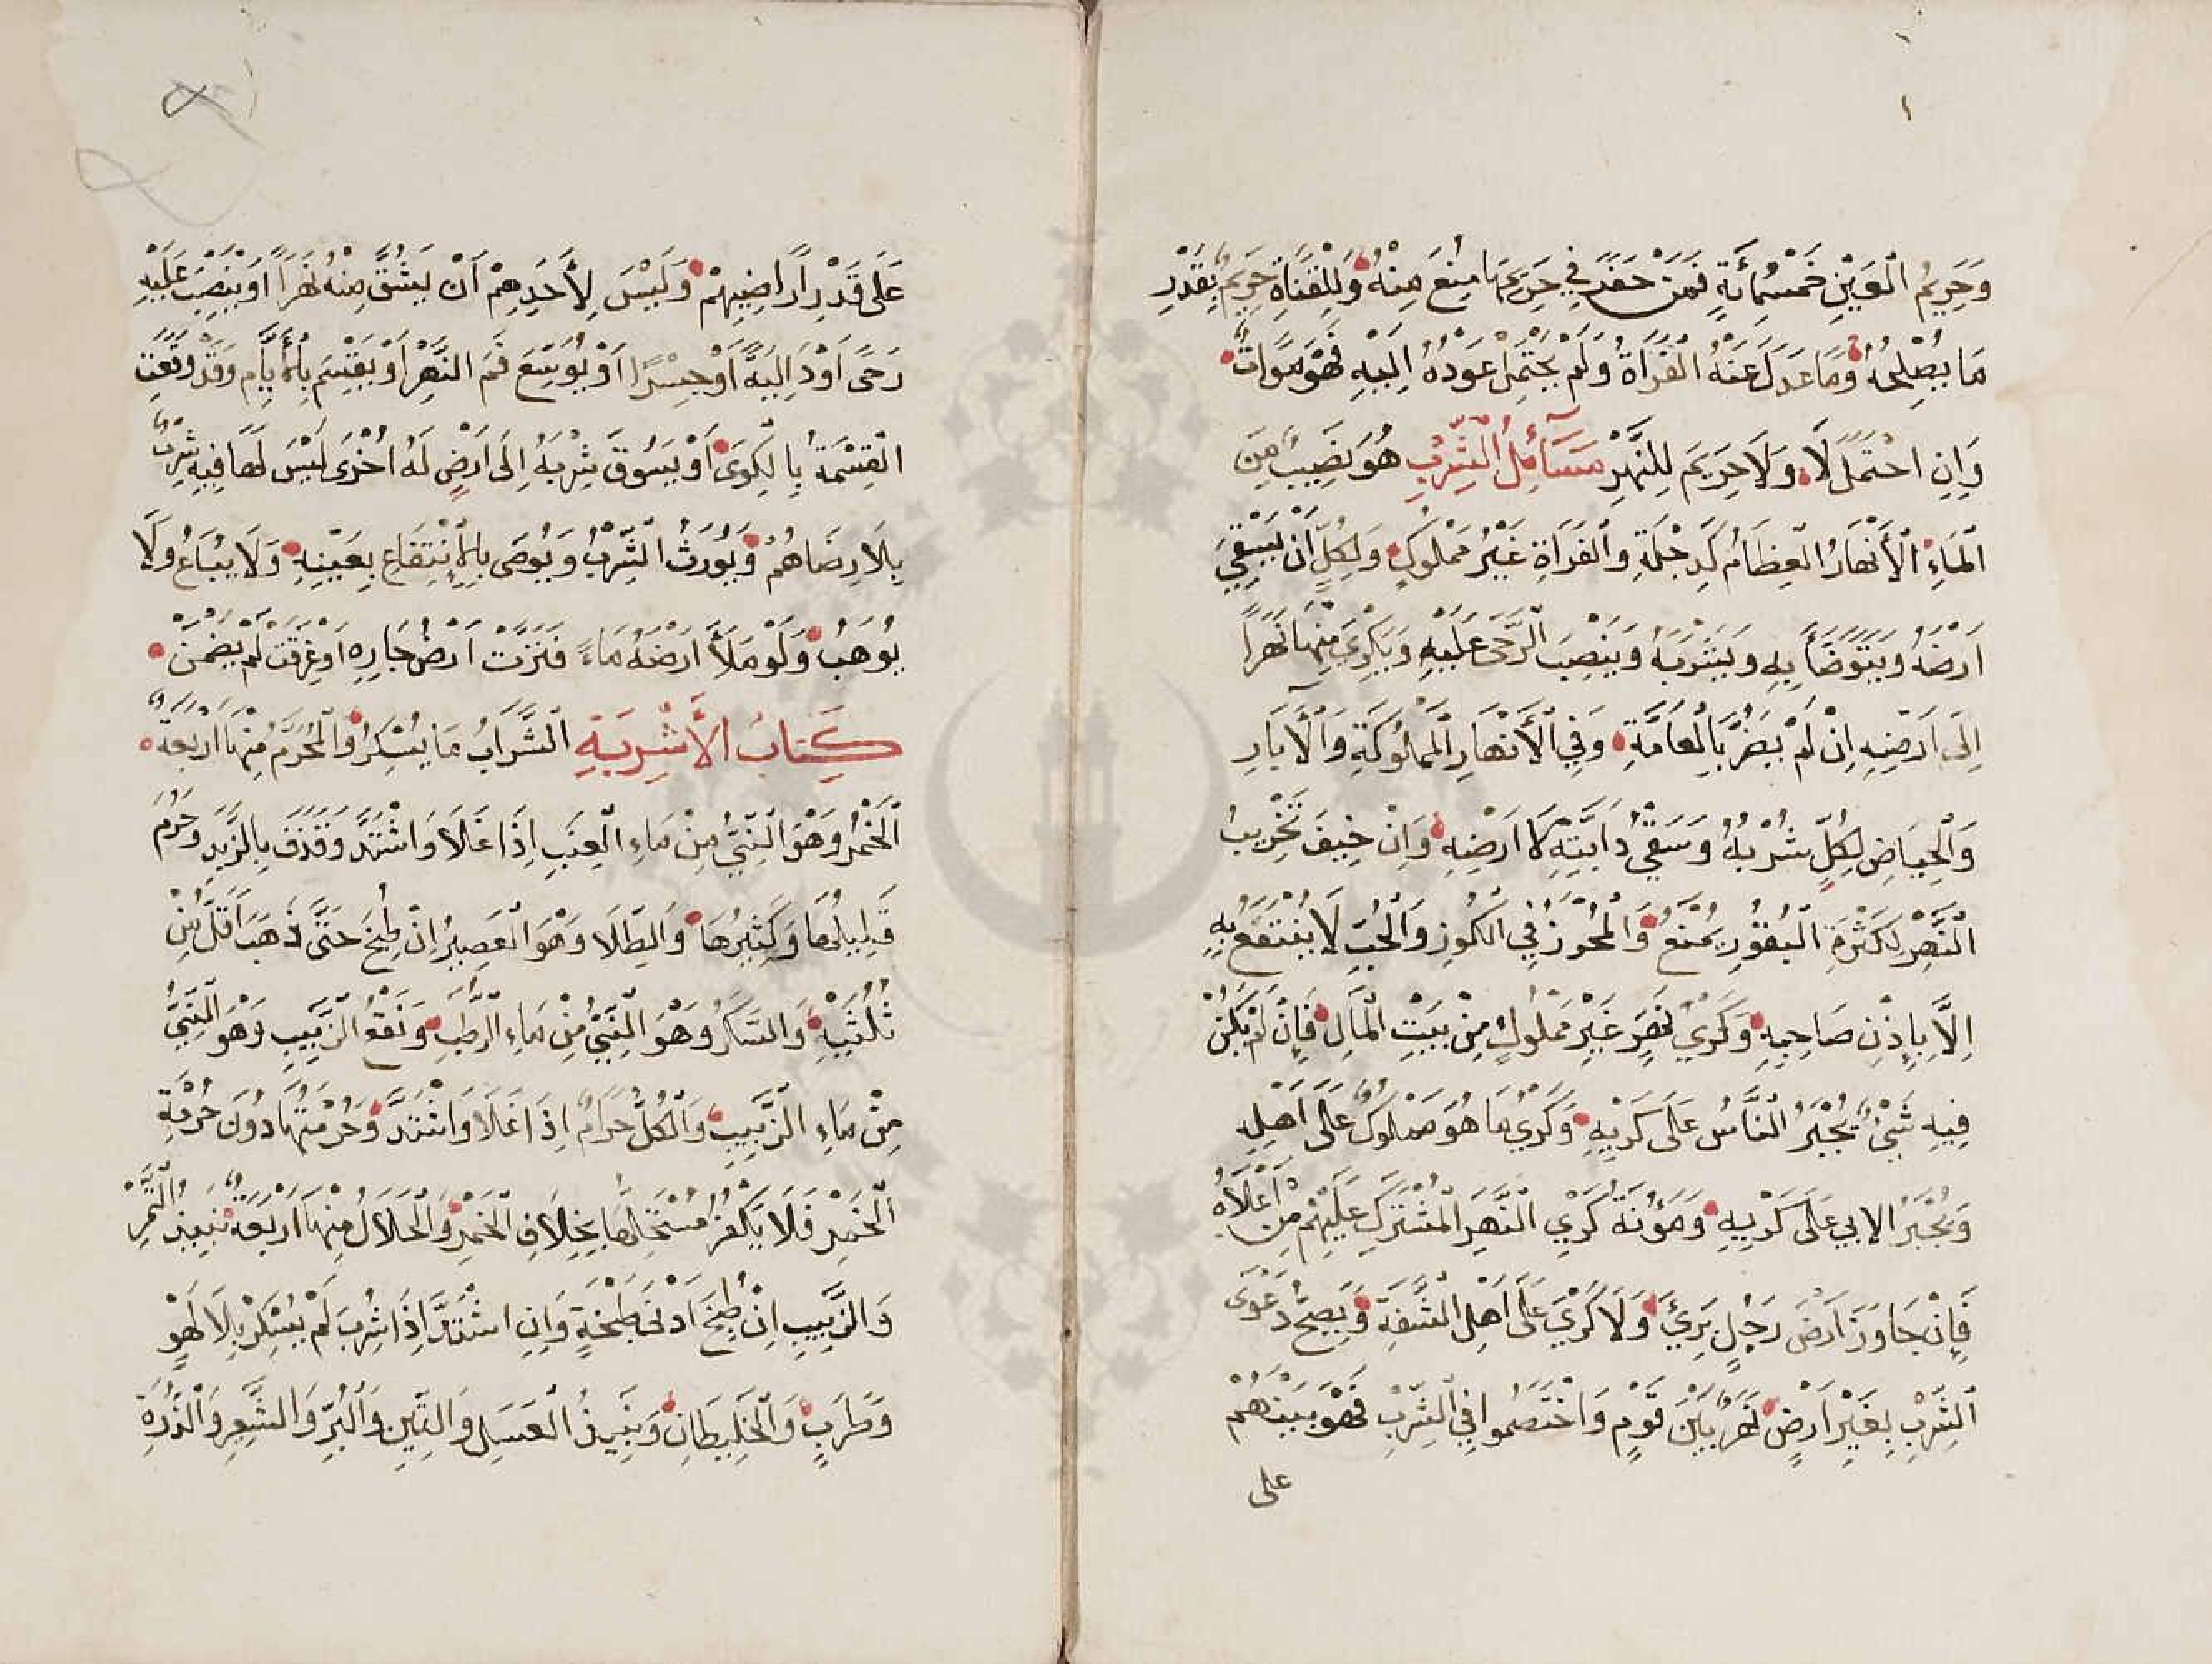 وَحَرِيمُ الْعَيْنِ خَمْسُمِائَةٍ فَمَنْ حَفَرَ فِي حَرِيمِهَا مُنِعَ مِنْهُ وَلِلْقَنَاةِ حَرِيمٌ بِقَدْرِ
مَا يُصْلِحُهُ وَمَا عَدَلَ عَنْهُ الْفُرَاةُ وَلَمْ يَحْتَمِلْ عَوْدُهُ اِلَيْهِ فَهُوَ مَوَاتٌ
وَاِنِ احْتَمَلَ لَا وَلَا حَرِيمَ لِلنَّهْرِ مَسَآئِلُ الشِّرْبِ هُوَ نَصِيبٌ مِنَ
الْمَاءِ الْأَنْهَارُ الْعِظَامُ كَدِجْلَةِ وَالْفُرَاةِ غَيْرُ مَمْلُوكٍ وَلِكُلٍّ اَنْ يَسْقِيَ
اَرْضَهُ وَيَتَوَضَّأَ بِهِ وَيَشْرَبَهُ وَيَنْصِبَ الرَّحَى عَلَيْهِ وَيَكْرِيَ مِنْهَا نَهْرًا
اِلَى اَرْضِهِ اِنْ لَمْ يَضُرَّ بِالْعَامَّةِ وَفِي الْأَنْهَارِ الْمَمْلُوكَةِ وَالْآبَارِ
وَالْحِيَاضِ لِكُلٍّ شُرْبُهُ وَسَقْيُ دَابَّتِهِ لَا اَرْضِهِ وَاِنْ خِيفَ تَخْرِيبُ
النَّهْرِ لِكَثْرَةِ الْبُقُورِ يُمْنَعُ وَالْمُحْرَزُ فِي الْكُوزِ وَالْحُبِّ لَا يُنْتَفَعُ بِهِ
اِلَّا بِاِذْنِ صَاحِبِهِ وَكَرْيُ نَهْرٍ غَيْرِ مَمْلُوكٍ مِنْ بَيْتِ الْمَالِ فَاِنْ لَمْ يَكُنْ
فِيهِ شَيْءٌ يُجْبَرُ النَّاسُ عَلَى كَرْيِهِ وَكَرْيُ مَا هُوَ مَمْلُوكٌ عَلَى اَهْلِهِ
وَيُجْبَرُ الابِي عَلَى كَرْيِهِ وَمَؤُنَةُ كَرْيِ النَّهْرِ الْمُشْتَرَكِ عَلَيْهِمْ مِنْ اَعْلَاهُ
فَاِنْ جَاوَزَ اَرْضَ رَجُلٍ بَرِئَ وَلَا كَرْيَ عَلَى اَهْلِ الشَّفَةِ وَيَصِحُّ دَعْوَى
الشِّرْبِ بِغَيْرِ اَرْضٍ نَهْرٌ بَيْنَ قَوْمٍ وَاخْتَصَمُوا فِي الشِّرْبِ فَهُوَ بَيْنَهُمْ
على
عَلَى قَدْرِ اَرَاضِيهِمْ وَلَيْسَ لِأَحَدِهِمْ اَنْ يَشُقَّ مِنْهُ نَهْرًا اَوْ يَنْصِبَ عَلَيْهِ
رَحًى اَوْ دَالِيَةً اَوْ جِسْرًا اَوْ يُوَسِّعَ فَمَ النَّهْرِ اَوْ يَقْسِمَ بِالْأَيَّامِ وَقَدْ وَقَعَتِ
الْقِسْمَةُ بِالْكِوَى اَوْ يَسُوقَ شِرْبَهُ اِلَى اَرْضٍ لَهُ اُخْرَى لَيْسَ لَهَا فِيهِ شِرْبٌ
بِلَا رِضَاهُمْ وَيُورَثُ الشِّرْبُ وَيُوصَى بِالْاِنْتِفَاعِ بِعَيْنِهِ وَلَا يُبَاعُ وَلَا
يُوهَبُ وَلَوْ مَلَأَ اَرْضَهُ مَاءً فَنَزَّتْ اَرْضُ جَارِهِ اَوْ غَرِقَتْ لَمْ يَضْمَنْ
كِتَابُ الْأَشْرِبَةِ الشَّرَابُ مَا يُسْكِرُ وَالْمُحَرَّمُ مِنْهَا اَرْبَعَةٌ
الْخَمْرُ وَهُوَ النِّيُّ مِنْ مَاءِ الْعِنَبِ اِذَا غَلَا وَاشْتَدَّ وَقَذَفَ بِالزَّبَدِ وَحَرُمَ
قَلِيلُهَا وَكَثِيرُهَا وَالطِّلَا وَهُوَ الْعَصِيرُ اِنْ طُبِخَ حَتَّى ذَهَبَ اَقَلُّ مِنْ
ثُلُثَيْهِ وَالسَّكَرُ وَهُوَ النِّيُّ مِنْ مَاءِ الرُّطَبِ وَنَقْعُ الزَّبِيبِ وَهُوَ النِّيُّ
مِنْ مَاءِ الزَّبِيبِ وَالْكُلُّ حَرَامٌ اِذَا غَلَا وَاشْتَدَّ وَحُرْمَتُهَا دُونَ حُرْمَةِ
الْخَمْرِ فَلَا يَكْفُرُ مُسْتَحِلُّهَا بِخِلَافِ الْخَمْرِ وَالْحَلَالُ مِنْهَا اَرْبَعَةٌ نَبِيذُ التَّمْرِ
وَالزَّبِيبِ اِنْ طُبِخَ اَدْنَى طَبْخَةٍ وَاِنِ اشْتَدَّ اِذَا شَرِبَ لَمْ يُسْكِرْ بِلَا لَهْوٍ
وَطَرَبٍ وَالْخَلِيطَانِ وَنَبِيذُ الْعَسَلِ وَالتِّينِ وَالْبُرِّ وَالشَّعِرِ وَالذُّرَةِ